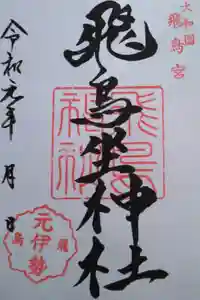 大和國
飛鳥宮
飛鳥坐神社
飛鳥坐神社
令和元年 月 日
元伊勢
飛鳥